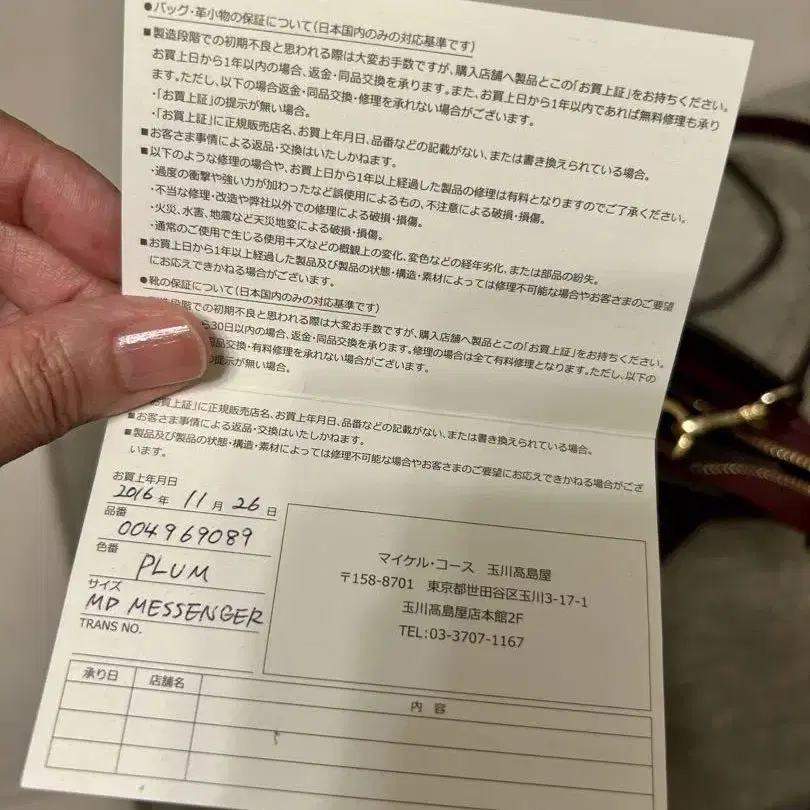 ●バッグ・革小物の保証について(日本国内のみの対応基準です)
■製造段階での初期不良と思われる際は大変お手数ですが、購入店舗へ製品とこの「お買上証」をお持ちください。
お買上日から1年以内の場合、返金・同品交換を承ります。また、お買上日から1年以内であれば無料修理も承り
ます。ただし、以下の場合返金・同品交換・修理を承れない場合がございます。
・「お買上証」の提示が無い場合。
・「お買上証」に正規販売店名、お買上年月日、品番などの記載がない、または書き換えられている場合。
■お客さま事情による返品・交換はいたしかねます。
■以下のような修理の場合や、お買上日から1年以上経過した製品の修理は有料となりますのでご了承ください。
・過度の衝撃や強い力が加わったなど誤使用によるもの、不注意による破損・損傷。
・不当な修理・改造や弊社以外での修理による破損・損傷。
・火災、水害、地震など天災地変による破損・損傷。
・通常のご使用で生じる使用キズなどの概観上の変化、変色などの経年劣化、または部品の紛失。
■お買上日から1年以上経過した製品及び製品の状態・構造・素材によっては修理不可能な場合やお客さまのご要望
にお応えできかねる場合がございます。
●靴の保証について(日本国内のみの対応基準です)
造段階での初期不良と思われる際は大変お手数ですが、購入店舗へ製品とこの「お買上証」をお持ちください。
から30日以内の場合、返金・同品交換を承ります。修理の場合は全て有料修理となります。ただし、以下の
品交換・有料修理を承れない場合がございます。
の提示が無い場合。
お買上証」に正規販売店名、お買上年月日、品番などの記載がない、または書き換えられている場合。
■お客さま事情による返品・交換はいたしかねます。
■製品及び製品の状態・構造・素材によっては修理不可能な場合やお客さまのご要望にお応えできかねる場合がござ
います。
お買上年月日
2016年 11月 26日
品番
004969089
色番
PLUM
サイズ
MD MESSENGER
TRANS NO.
マイケル・コース 玉川髙島屋
〒158-8701 東京都世田谷区玉川3-17-1
玉川髙島屋店本館2F
TEL:03-3707-1167
承り日 店舗名 内 容